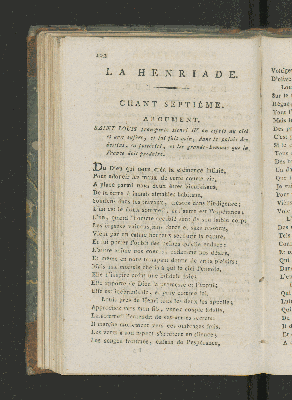 LA HENRIADE.
CHANT SEPTIÈME.
ARGUMENT.
SAINT LOUIS transporte Henri IV en esprit au ciel
et aux enfers, et lui fait voir, dans le palais des
destins, sa postérité, et les grands hommes que la
France doit produire.
Du Dieu qui nous créa la clémence infinie,
Pour adoucir les maux de cette courte vie,
A placé parmi nous deux êtres bienfaisans,
De la terre à jamais aimables habitans,
Soutiens dans les travaux, trésors dans l'indigence;
L'un est le doux sommeil, et l'autre est l'espérance;
L'un, quand l'homme accablé sent de son faible corps
Les organes vaincus sans force et sans ressorts,
Vient par un calme heureux secourir la nature,
Et lui porter l'oubli des peines qu'elle endure;
L'autre anime nos cœurs, enflamme nos désirs,
Et même en nous trompant donne de vrais plaisirs;
Mais aux mortels chéris à qui le ciel l'envoie,
Elle n'inspire point une infidèle joie;
Elle apporte de Dieu la promesse et l'appui;
Elle est inébranlable, et pure comme lui.
Louis près de Henri tous les deux les appelle;
Approchez vers mon fils, venez couple fidèle.
Le sommeil l'entendit de ses antres secrets.
Il marche mollement vers ces ombrages frais.
Les vents à son aspect s'arrêtent en silence;
Les songes fortunés, enfans de l'espérance,